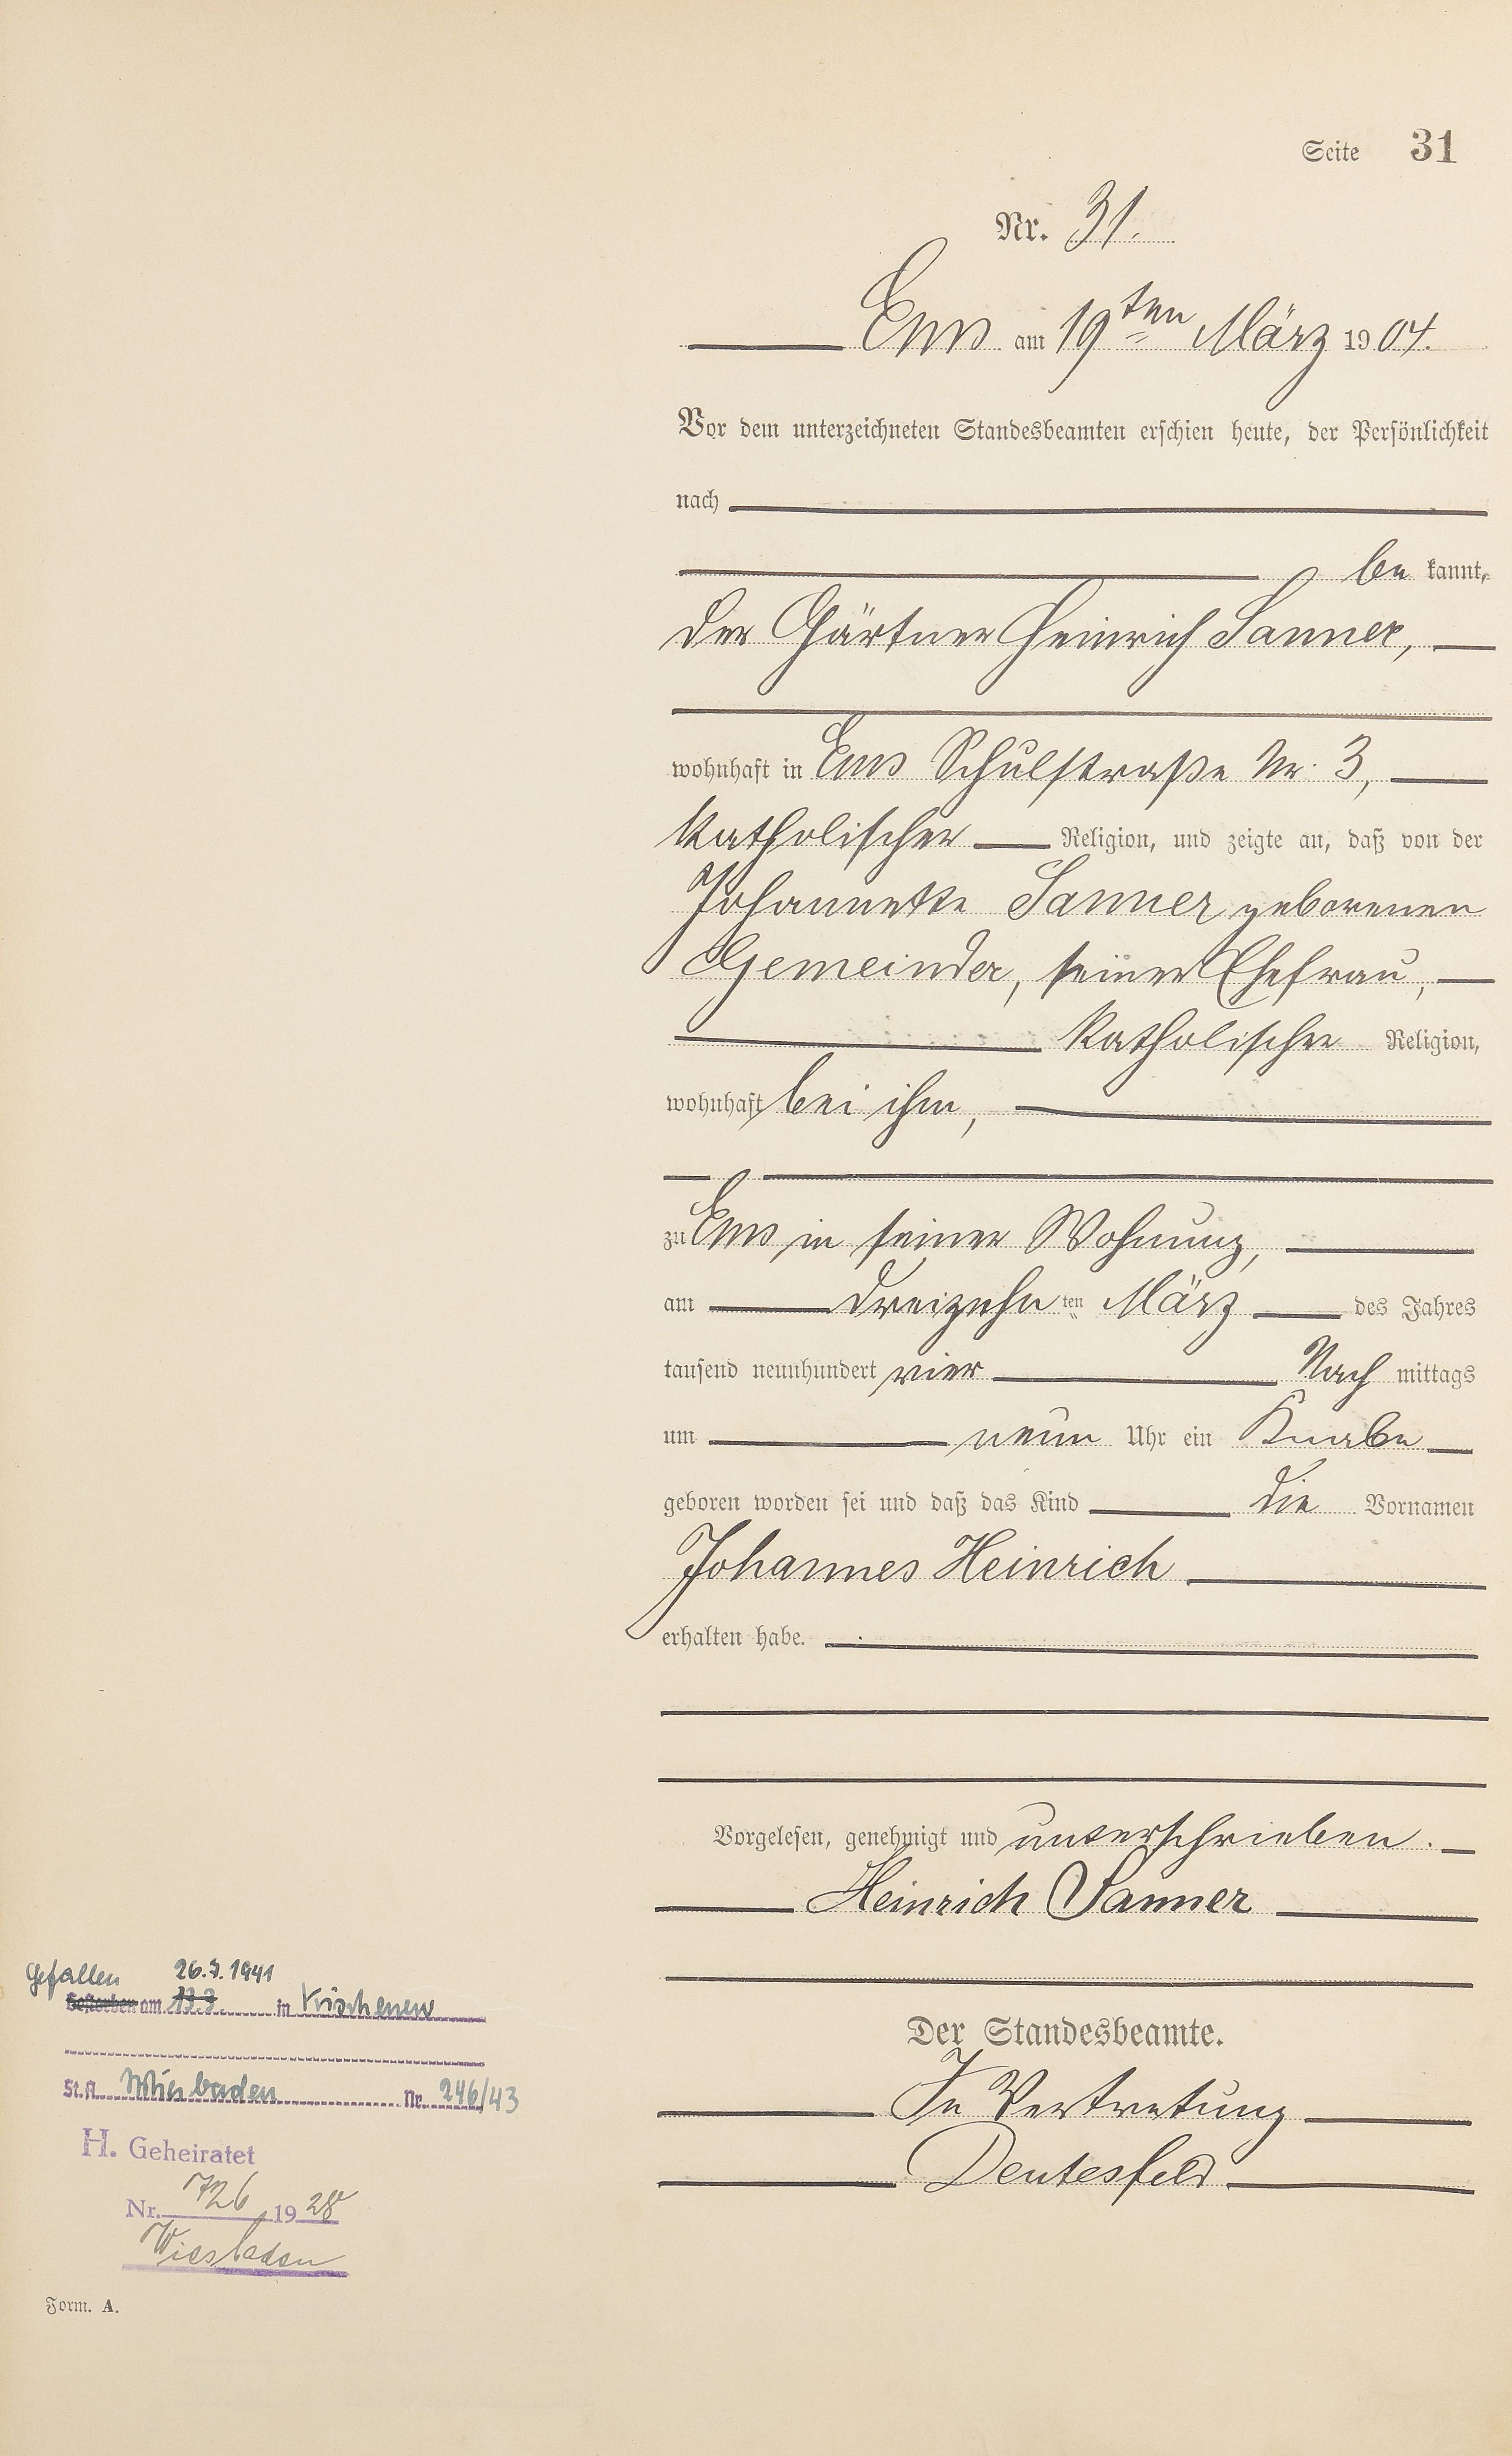 Seite 31
Nr. 31.
Ems am 19ten März 1904.
Vor dem unterzeichneten Standesbeamten erschien heute, der Persönlichkeit
nach
be kannt,
der Gärtner Heinrich Sanner,
wohnhaft in Ems Schulstraße Nr. 3,
katholischer Religion, und zeigte an, daß von der
Johannette Sanner geborenen
Gemeinder, seiner Ehefrau,
katholischer Religion,
wohnhaft bei ihm,
zu Ems in seiner Wohnung,
am dreizehnten März des Jahres
tausend neunhundert vier Nach mittags
um neun Uhr ein Knabe
geboren worden sei und daß das Kind die Vornamen
Johannes Heinrich
erhalten habe.
Vorgelesen, genehmigt und unterschrieben.
Heinrich Sanner
Der Standesbeamte.
In Vertretung
Deutesfeld
Gefallen 26.7.1941
Gestorben am 13.7. in Krischenew
St.A. Wiesbaden Nr. 246/43
H. Geheiratet
Nr. 726 1928
Wiesbaden
Form. A.